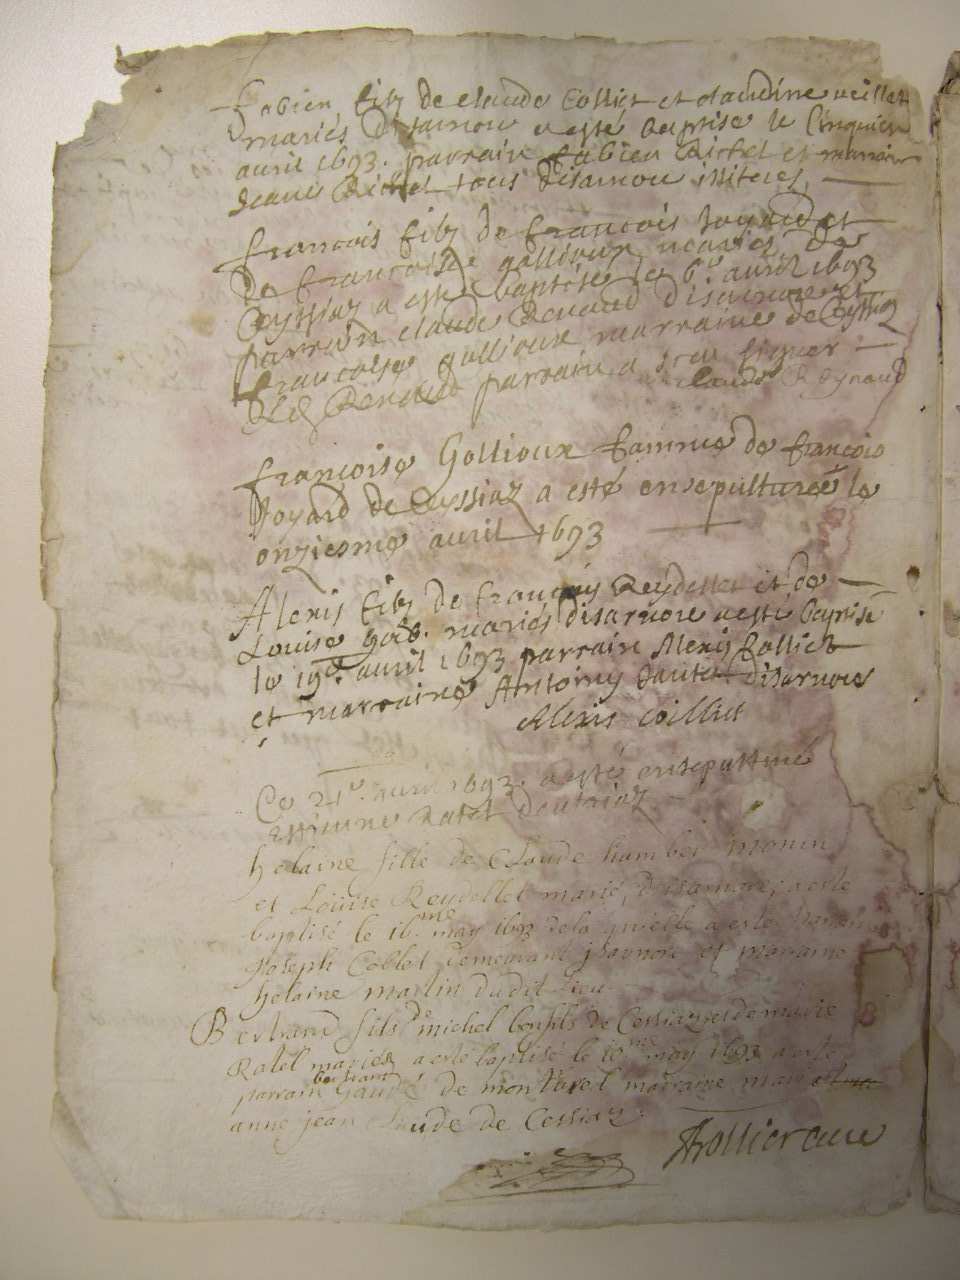 fabien filz de claude Colliet et claudine veillet
mariés disarnou a esté baptisé le Cinquiem
avril 1693. parrain fabien Richel et marraine
Jeane Richel tous disarnou illiteres.
francois filz de francois Joyard et
De francoise gollioux mariés de
Ceyssiaz a esté baptisé le 6e avril 1693
parrain claude Renaud disarnore et
francoise gollioux marraine de Ceyssiaz
Led Renaud parrain a sceu signer
claude Reynaud
francoise Gollioux famme de francois
Joyard de Ceyssiaz a esté ensepulturée le
onziesme avril 1693
Alexis filz de francois Reydellet et de
Louise mariés disarnore a esté baptisé
le 19e. avril 1693 parrain Alexis Colliet
et marraine disarnore
Alexis Coilliet
Ce 21e. avril 1693. a esté ensepulturé
Ratel
helaine fille de Claude humber monin
et Louise Reydellet marié, disarnore, a este
baptisé le 16.me may 1693 de la quelle a esté
Joseph Collet demeurant isarnore et maraine
helaine martin dudit Lieu
Bertrand fils d michel de Cessiaz et de marie
Ratel mariez a esté baptisé le 10me may 1693 a este
parrain bertrand de maraine
anne jean claude de Cessiaz.